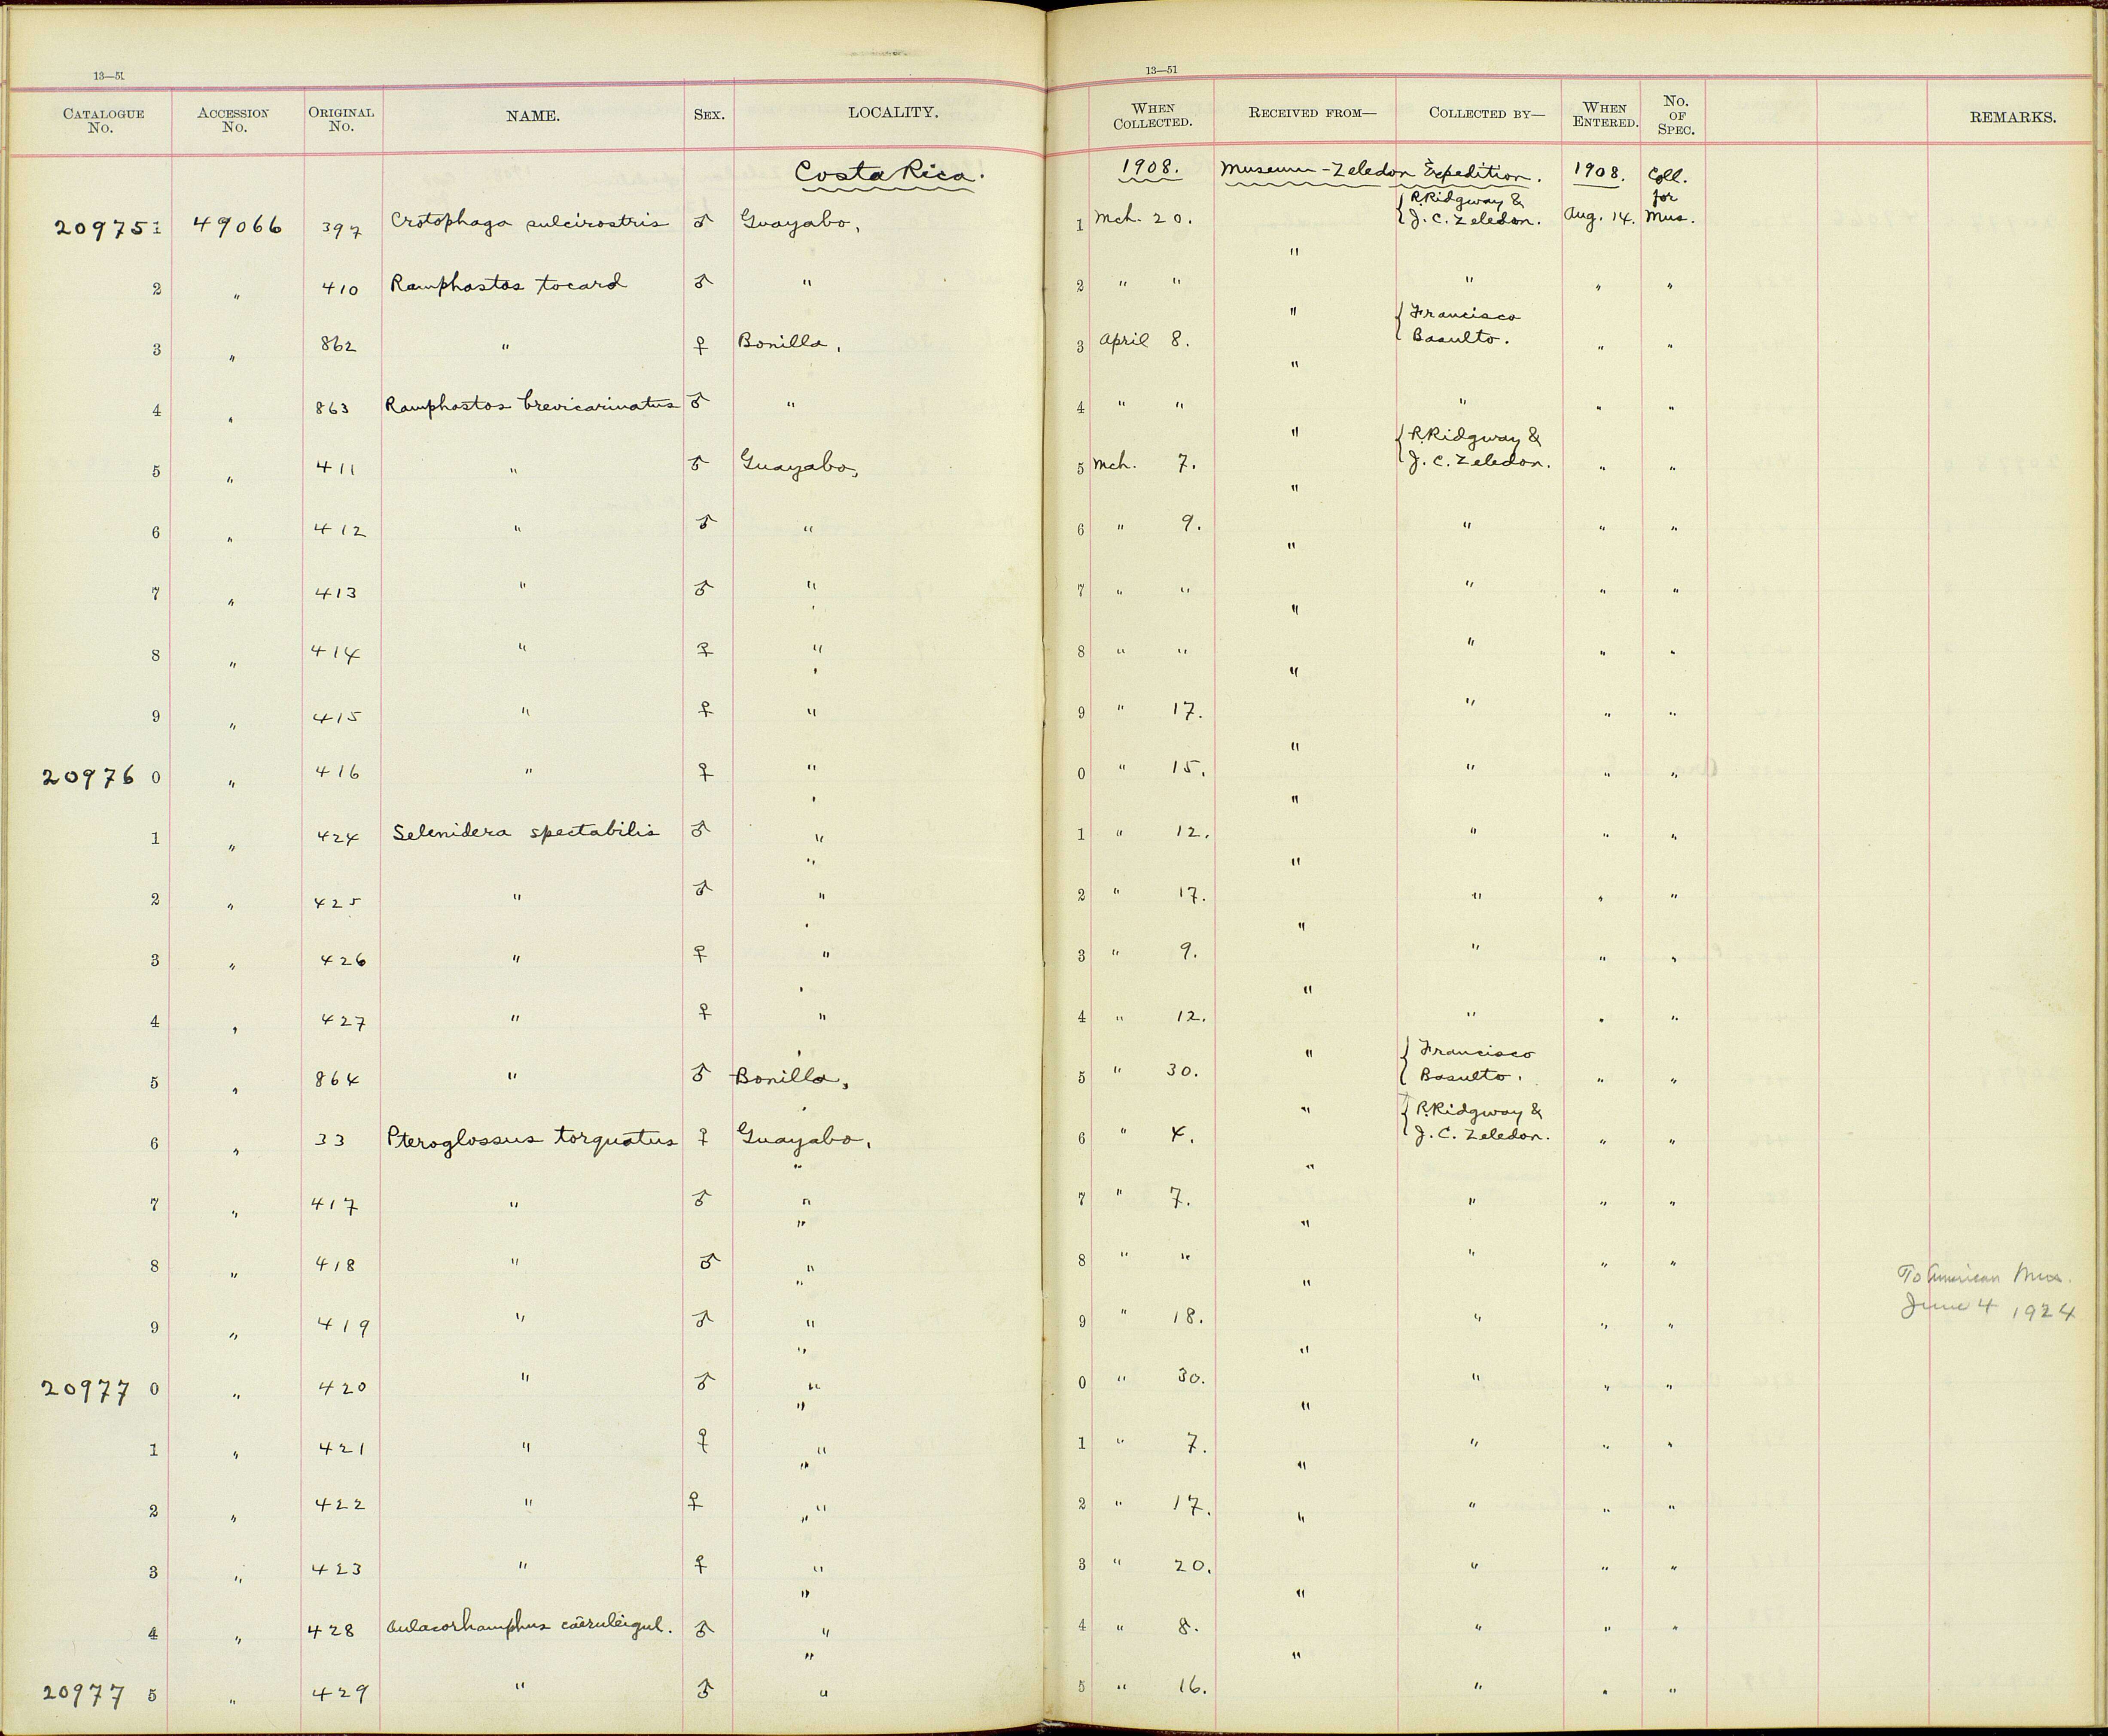 13—51
13—51
CATALOGUE No. ACCESSION No. ORIGINAL No. NAME. SEX. LOCALITY. WHEN COLLECTED. RECEIVED FROM— COLLECTED BY— WHEN ENTERED. No. OF SPEC. REMARKS.
Costa Rica. 1908. Museum-Zeledon Expedition. 1908. Coll. for
20975 1 49066 397 Crotophaga sulcirostris ♂ Guayabo, 1 Mch. 20. { R. Ridgway & J. C. Zeledon. Aug. 14. Mus.
2 " 410 Ramphastos tocard ♂ " 2 " " " " " "
3 " 862 " ♀ Bonilla, 3 April 8. " { Francisco Basulto. " "
4 " 863 Ramphastos brevicarinatus ♂ " 4 " " " " " "
5 " 411 " ♂ Guayabo, 5 Mch. 7. " { R. Ridgway & J. C. Zeledon. " "
6 " 412 " ♂ " 6 " 9. " " " "
7 " 413 " ♂ " 7 " " " " " "
8 " 414 " ♀ " 8 " " " " " "
9 " 415 " ♀ " 9 " 17. " " " "
20976 0 " 416 " ♀ " 0 " 15. " " " "
1 " 424 Selenidera spectabilis ♂ " 1 " 12. " " " "
2 " 425 " ♂ " 2 " 17. " " " "
3 " 426 " ♀ " 3 " 9. " " " "
4 " 427 " ♀ " 4 " 12. " " " "
5 " 864 " ♂ Bonilla, 5 " 30. " { Francisco Basulto. " "
6 " 33 Pteroglossus torquatus ♀ Guayabo, 6 " 4. " { R. Ridgway & J. C. Zeledon. " "
7 " 417 " ♂ " 7 " 7. " " " "
8 " 418 " ♂ " 8 " " " " " " To American Mus.
9 " 419 " ♂ " 9 " 18. " " " " June 4 1924
20977 0 " 420 " ♂ " 0 " 30. " " " "
1 " 421 " ♀ " 1 " 7. " " " "
2 " 422 " ♀ " 2 " 17. " " " "
3 " 423 " ♀ " 3 " 20. " " " "
4 " 428 Aulacorhamphus cæruleigul. ♂ " 4 " 8. " " " "
20977 5 " 429 " ♂ " 5 " 16. " " " "